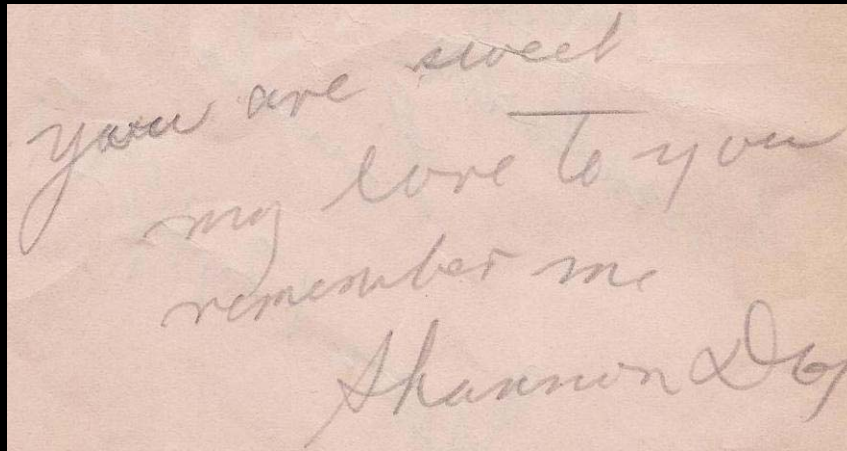 you are sweet
my love to you
remember me
Shannon Day